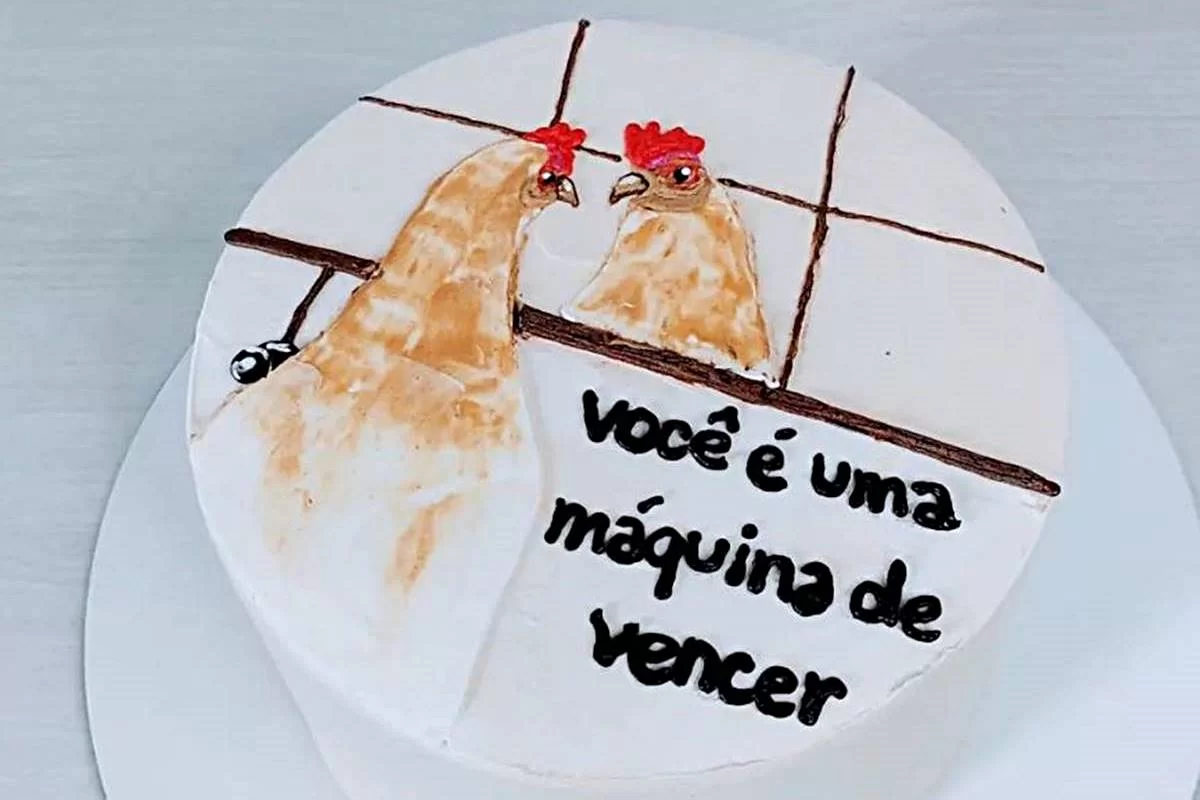 você é uma
máquina de
vencer